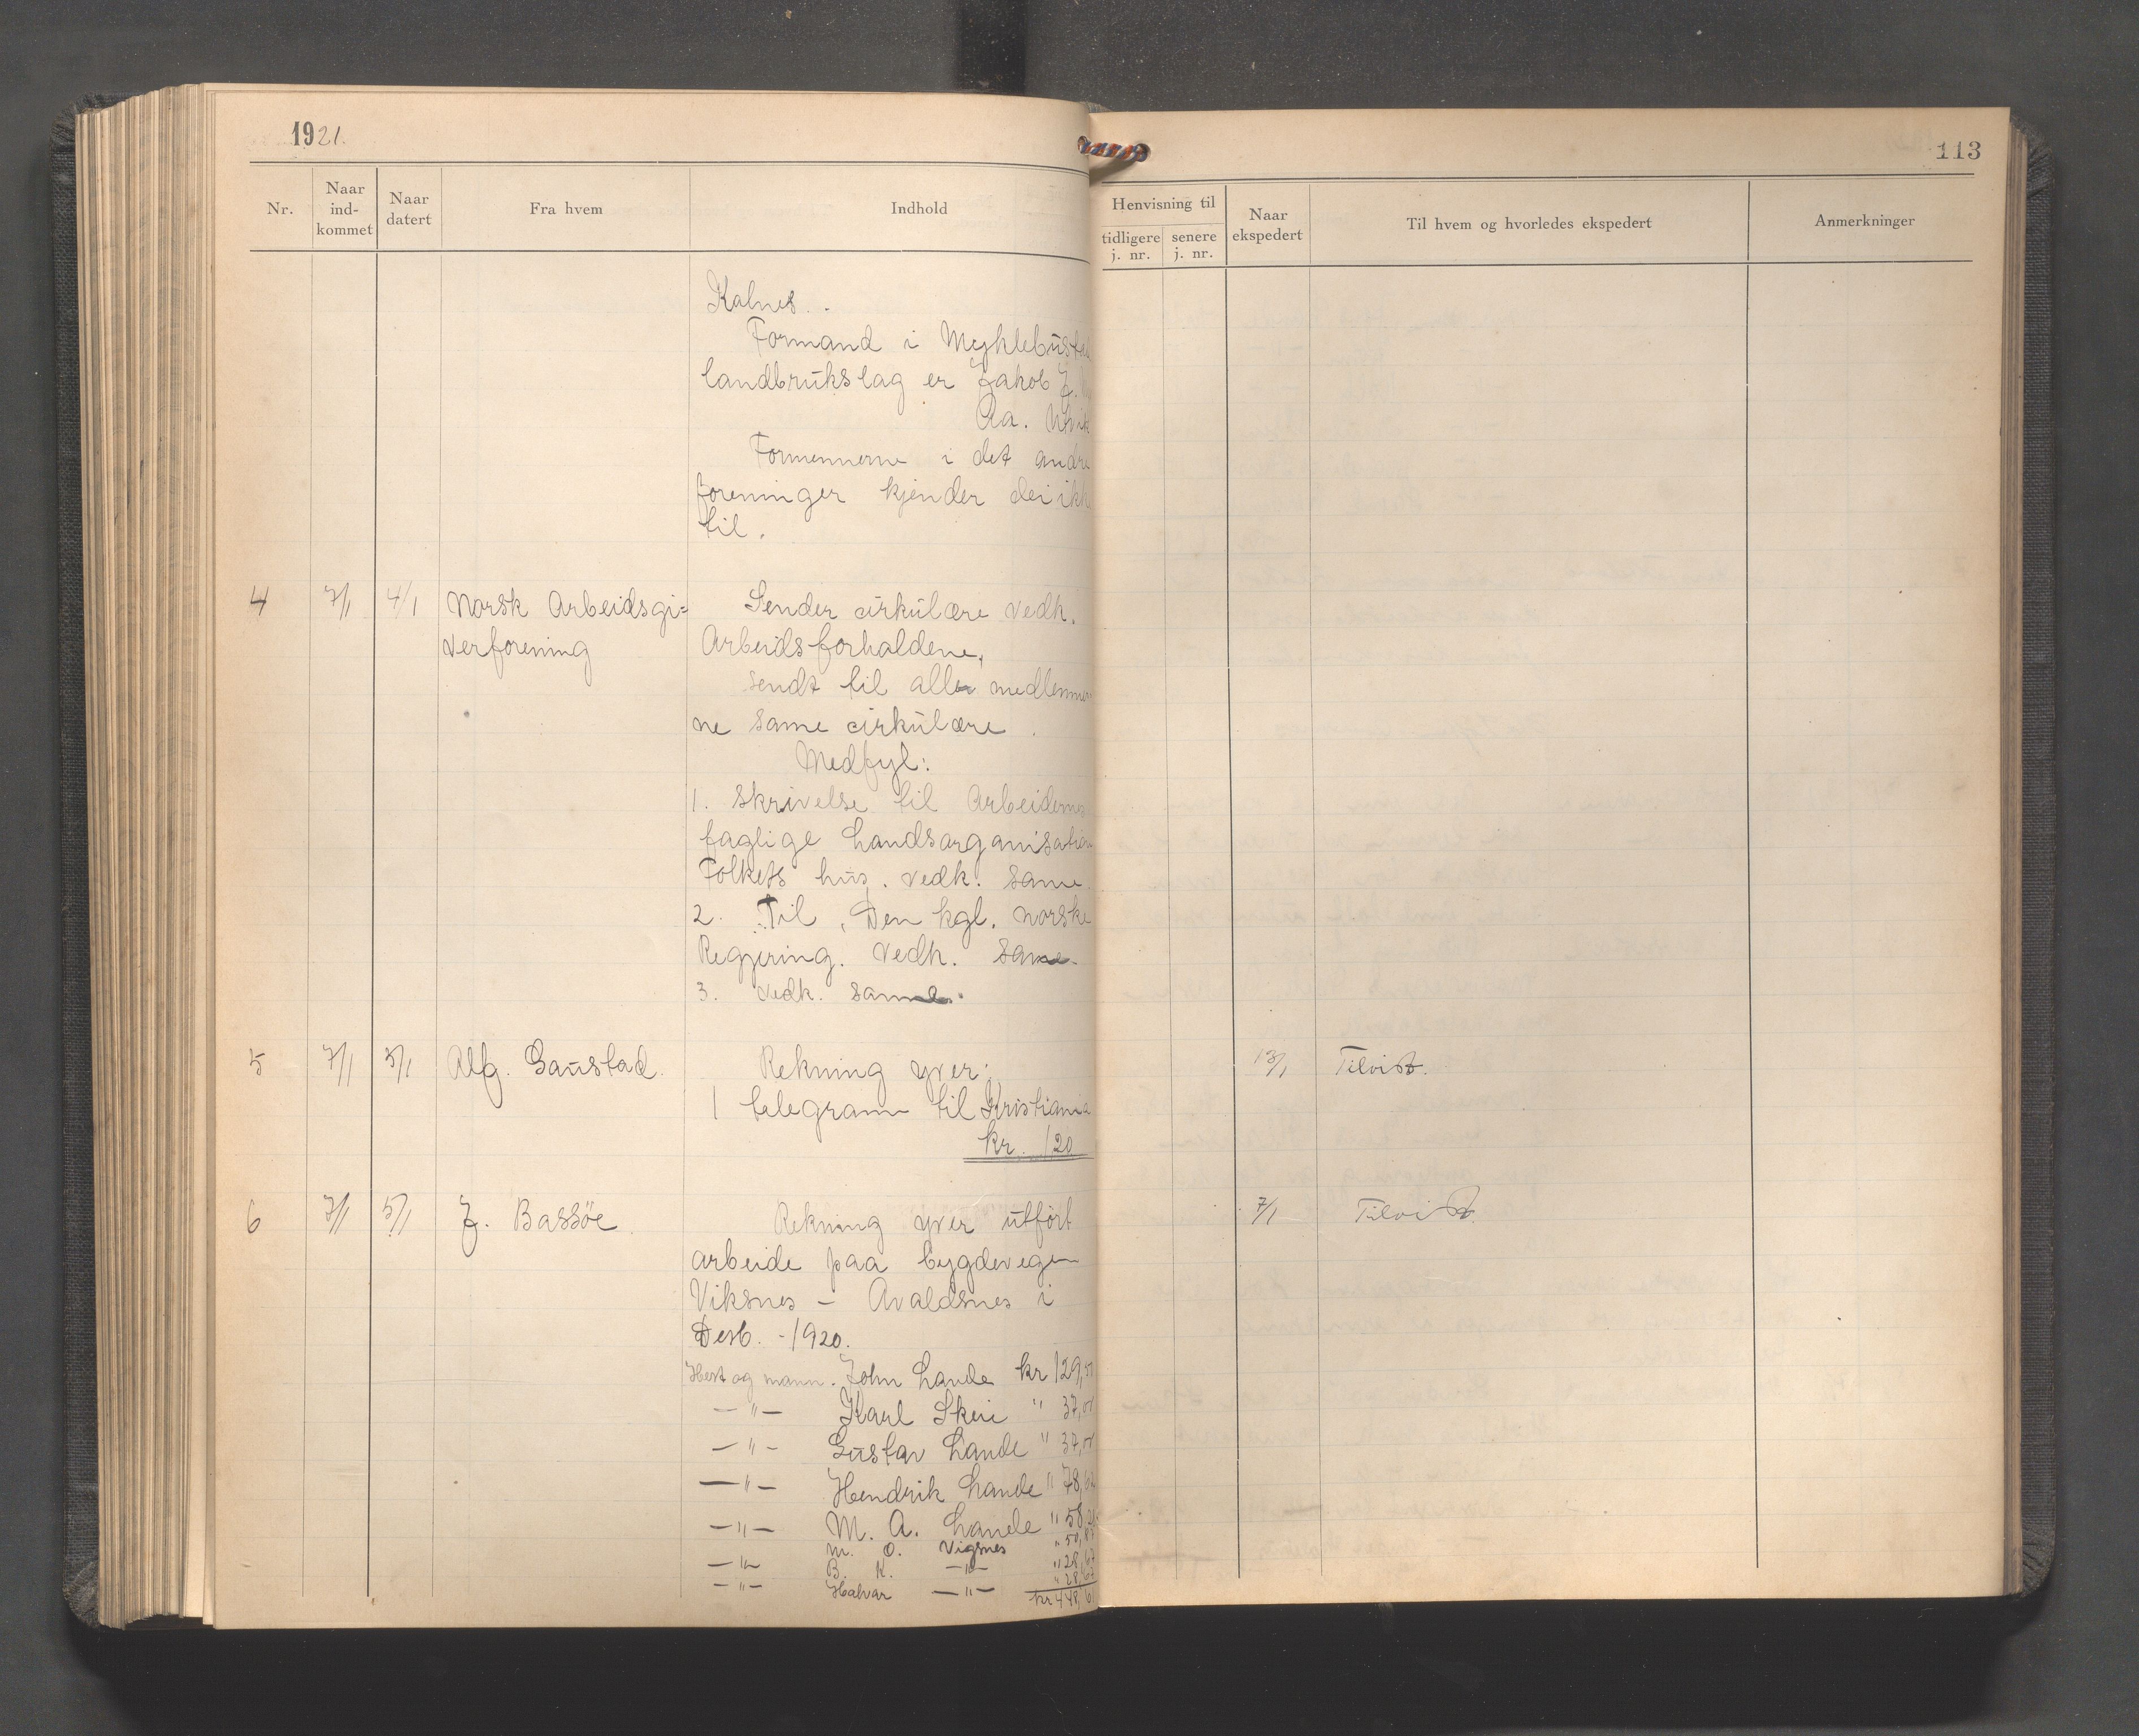 1921.
113
Nr.
Naar ind-kommet
Naar datert
Fra hvem
Indhold
Henvisning til
tidligere j. nr.
senere j. nr.
Naar ekspedert
Til hvem og hvorledes ekspedert
Anmerkninger
Kalnes.
Formand i Myklebustad
landbrukslag er Jakob J.
Aa.
Formennerne i det andre
foreninger kjender dei ikk
til.
4 7/1 4/1 Norsk Arbeidsgi= Sender cirkulære vedk.
verforening Arbeidsforholdene,
sendt til alle medlemmer
ne same cirkulære.
Medfyl:
1. Skrivelse til Arbeidernes
faglige Landsorganisation
Folkets hus. vedk. same
2. Til Den kgl. norske
Regjering. vedk. same.
3. vedk. same.
5 7/1 5/1 Alfg. Gaustad. Rekning yver: 13/1 Tilvist.
1 telegram til Kristiania
kr. 1,20
6 7/1 5/1 J. Bassöe. Rekning yver utført 7/1 Tilvist.
arbeide paa bygdevegen
Viksnes - Avaldsnes i
Desb. -1920.
Hest og mann. John Lande kr 129,
-"- Karl Skei " 37,
-"- Gustav Lande " 37,
-"- Hendrik Lande " 78,
-"- M. A. Lande " 58,
M. O. Vigsnes " 50,
-"- B. K. -"- " 28,67
-"- Halvar -"- " 28,67
kr 448,61